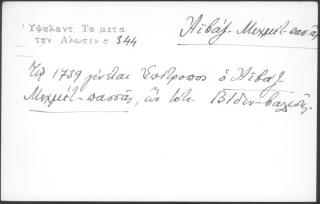 Ὑψηλαντ. Τα μετα
την Αλωσιν σ 344
Ἀϊβάζ-Μεχμέτ-πασᾶς
Τῷ 1739 γίνεται Ἐπίτροπος ὁ Ἀϊβάζ
Μεχμέτ-πασσᾶς, ὢν τότε Βιδιν-βαλεσῆς.